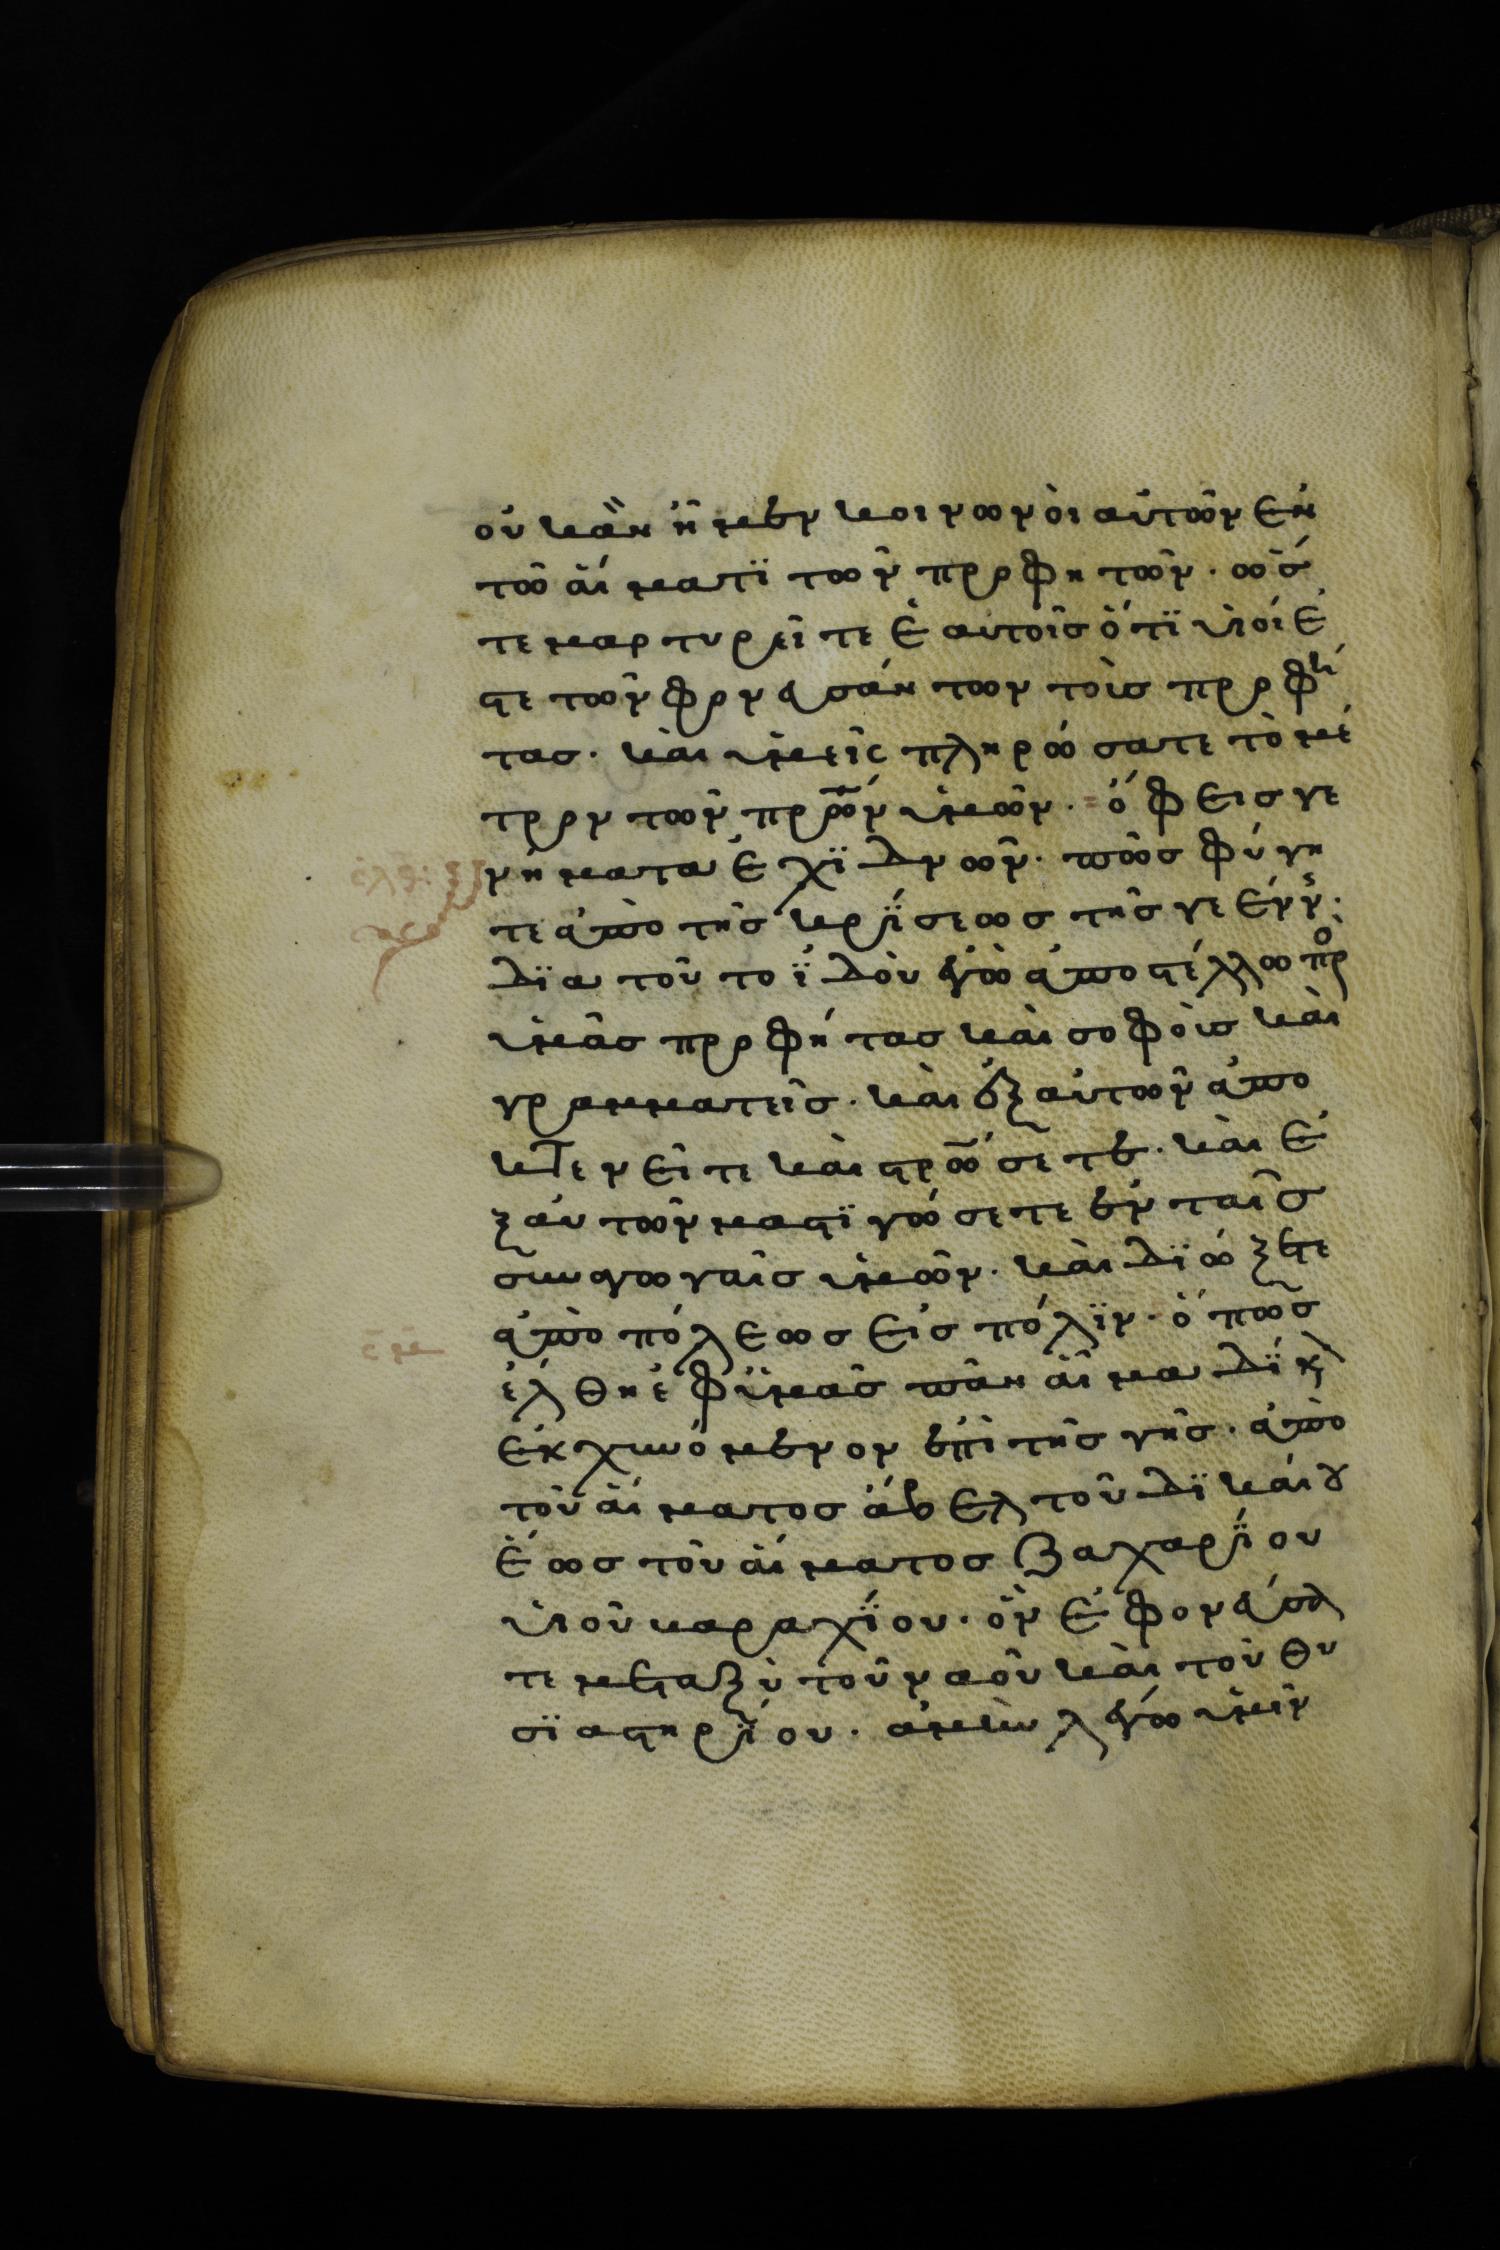 οὐκ ἂν ἦμεν κοινωνοὶ αὐτῶν ἐν
τῶ αἵματϊ τῶν προφητῶν· ὥσ
τε μαρτυρεῖτε ἑαυτοῖς ὅτϊ υἱοί ἐ
στε τῶν φονευσάντων τοὺς προφή
τας· καὶ ὑμεῖς πληρώσατε τὸ μέ
τρον τῶν πρων ὑμῶν· ὄφεις γε
νήματα ἐχϊδνῶν· πῶς φύγη
τε ἀπὸ τῆς κρΐσεως τῆς γεέννς·
δϊα τοῦτο ϊδοὺ ἐγὼ ἀποστέλλω πρ
ὑμᾶς προφήτας καὶ σοφοὺς καὶ
γραμματεῖς· καὶ ἐξ αὐτῶν ἀπο
κτενεῖτε καὶ στρώσετε· καὶ ἐ
ξ αὐτῶν μαστϊγώσετε ἐν ταῖς
συναγωγαῖς ὑμῶν· καὶ δϊώξετε
ἀπὸ πόλεως εἰς πόλϊν· ὅπως
ἔλθη ἐφ ϋμᾶς πᾶν αἷμα δΐκ
ἐκχυνόμενον ἐπὶ τῆς γῆς· ἀπὸ
τοῦ αἵματος ἄβελ τοῦ δϊκαίου
ἕως τοῦ αἵματος ζαχαρΐου
υἱοῦ βαραχΐου· ὃν ἐφονεύσα
τε μεταξὺ τοῦ ναοῦ καὶ τοῦ θυ
σϊαστηρΐου· ἀμὴν λέγω ὑμῖν